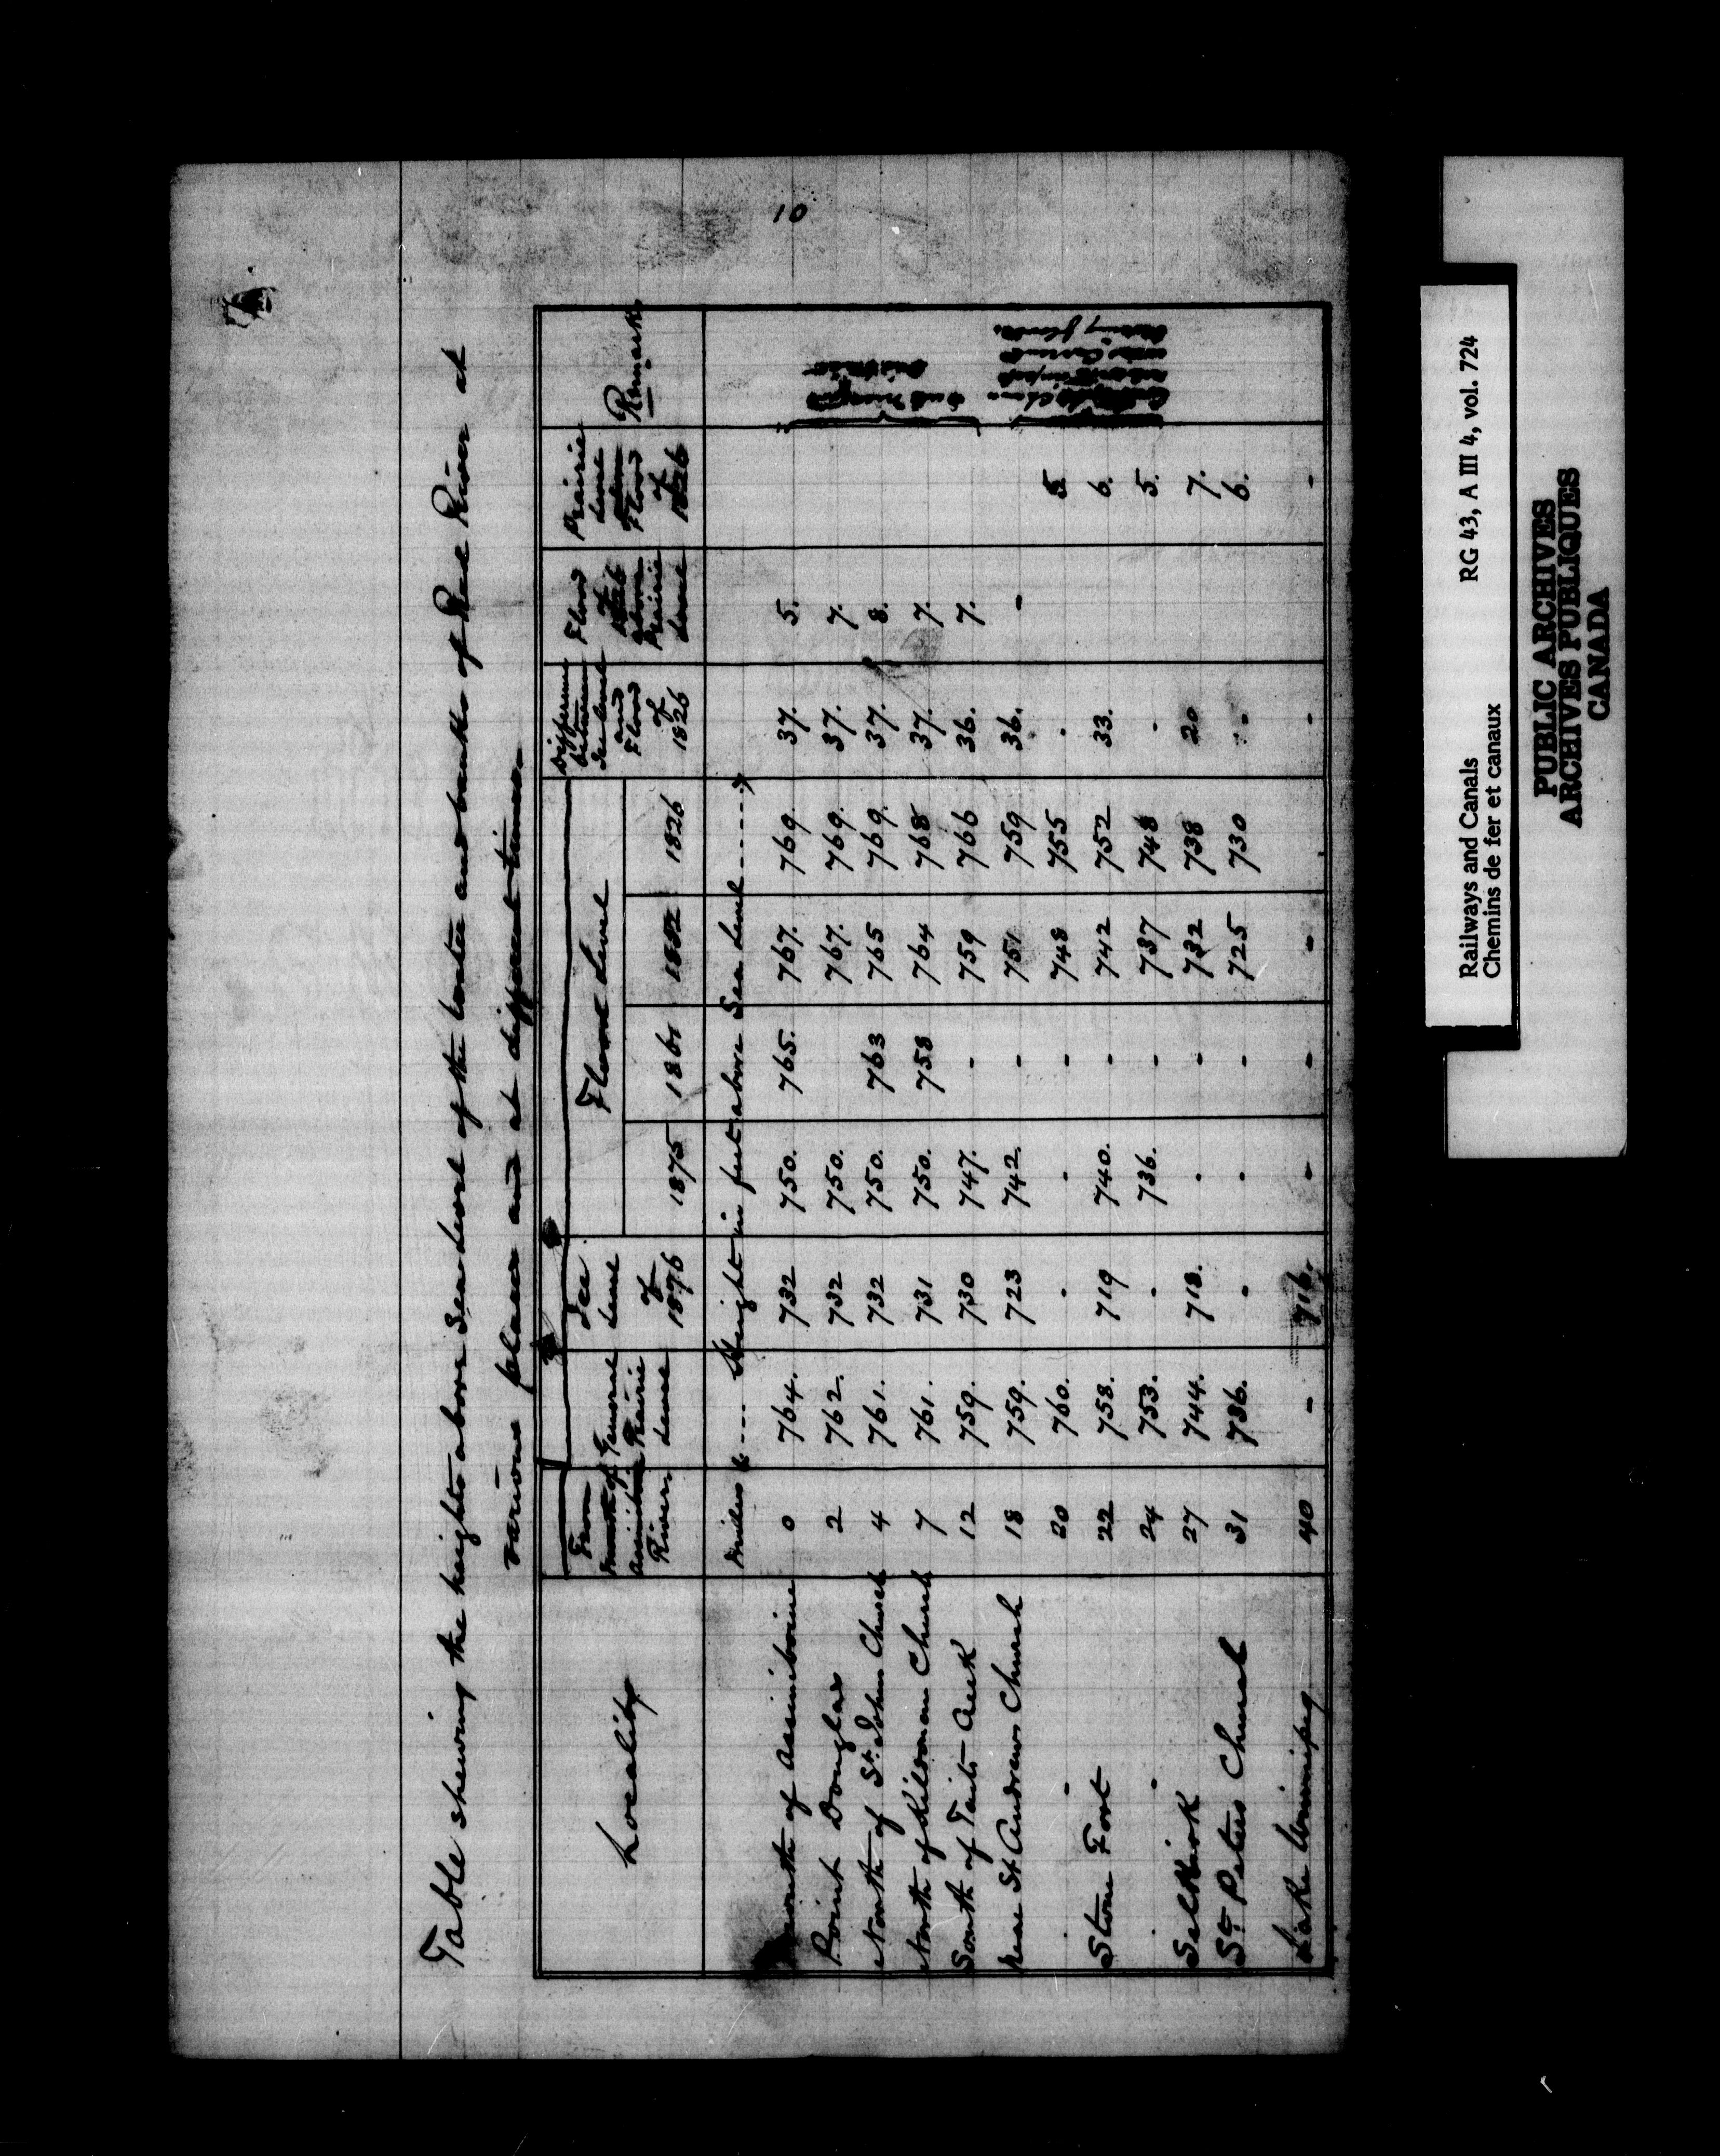 10
Table shewing the heights above Sea level of the water and banks of Red River at
various places and at different times.
Locality | From Mouth of Assiniboine River | General Prairie level | Ice level of 1876 | Flood level 1875 | 1861 | 1852 | 1826 | Difference between Ice level and Flood of 1826 | Flood of 1826 above Prairie level | Prairie level above Flood of 1826 | Remarks
Miles | Height in feet above Sea level
Mouth of Assiniboine | 0 | 764. | 732 | 750. | 765. | 767. | 769. | 37. | 5.
Point Douglas | 2 | 762. | 732 | 750. | | 767. | 769. | 37. | 7.
North of St. Johns Church | 4 | 761. | 732 | 750. | 763 | 765 | 769. | 37. | 8.
North of Kildonan Church | 7 | 761. | 731 | 750. | 758 | 764 | 768 | 37. | 7.
South of Taits Creek | 12 | 759. | 730 | 747. | - | 759 | 766 | 36. | 7.
Near St Andrews Church | 18 | 759. | 723 | 742 | - | 751 | 759 | 36. | -
. - | 20 | 760. | . | . | - | 748 | 755 | . | | 5.
Stone Fort | 22 | 758. | 719 | 740. | - | 742 | 752 | 33. | | 6.
. - | 24 | 753. | - | 736. | - | 737 | 748 | - | | 5.
Selkirk | 27 | 744. | 718. | . | - | 732 | 738 | 20 | | 7.
St. Peters Church | 31 | 736. | . | . | - | 725 | 730 | - | | 6.
Lake Winnipeg | 40 | - | 716. | - | - | - | | - | | -
Submerged
District
during floods.
Railways and Canals RG 43, A III 4, vol. 724
Chemins de fer et canaux
PUBLIC ARCHIVES
ARCHIVES PUBLIQUES
CANADA